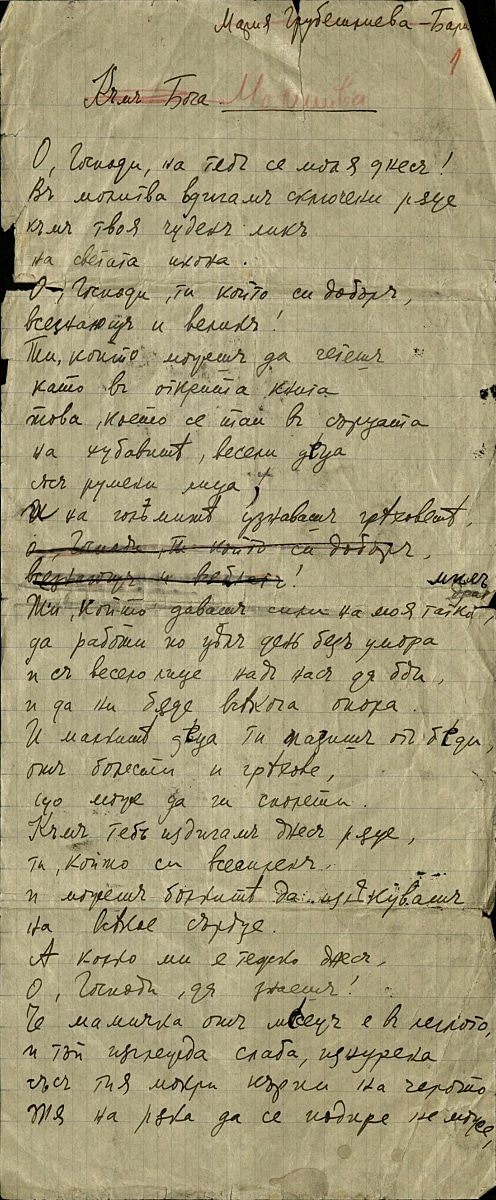 Мария Грубешлиева-Бали
1
Къмъ Бога Молитва
О, Господи, на тебъ се моля днесъ!
Въ молитва вдигамъ сключени рѫце
къмъ твоя чуденъ ликъ
на светата икона.
О, Господи, ти който си добъръ,
всезнающъ и великъ!
Ти, който можешъ да четешъ
като въ открита книга
това, което се таи въ сърцата
на хубавитѣ, весели деца
съ румени лица,
И на голѣмитѣ узнавашъ грѣховетѣ,
о, Господи, ти който си добъръ,
всезнающъ и великъ!
милъ
Ти, който давашъ сили на моя татко,
да работи по цѣлъ день безъ умора
и съ весело лице надъ насъ да бди,
и да ни бѫде всѣкога опора.
И малкитѣ деца ти пазишъ отъ беди,
отъ болести и грѣхове,
що може да ги сполети.
Къмъ тебъ издигамъ днесъ рѫце,
ти, който си всесиленъ
и можешъ болкитѣ да изцѣлувашъ
на всѣкое сърдце.
А колко ми е тежко днесъ,
О, Господи, да знаешъ!
Че мамичка отъ месецъ е въ леглото,
и тъй изглежда слаба, изнурена
съсъ тия мокри кърпи на челото.
Тя на рѫка да се подпре не може,